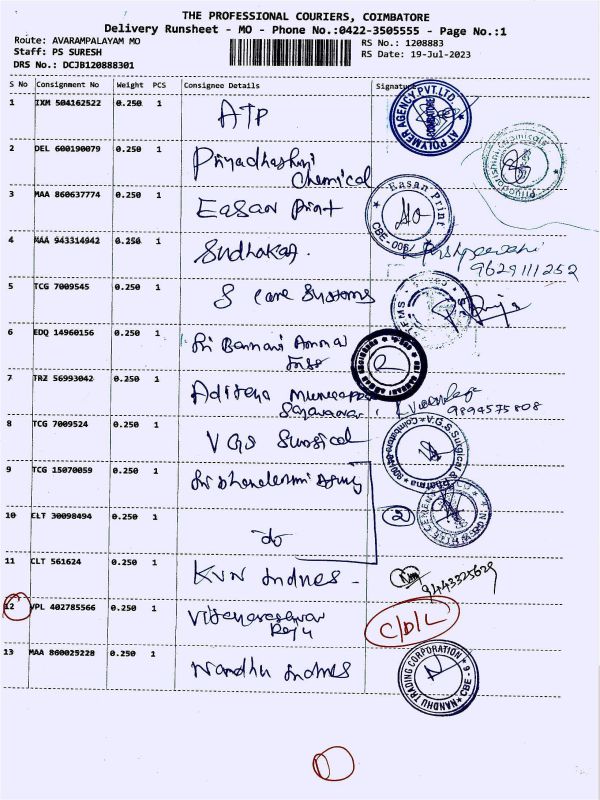 THE PROFESSIONAL COURIERS, COIMBATORE
Delivery Runsheet - MO - Phone No.:0422-3505555 - Page No.:1
Route: AVARAMPALAYAM MO
RS No.: 1208883
Staff: PS SURESH
RS Date: 19-Jul-2023
DRS No.: DCJB120888301
S No Consignment No Weight PCS Consignee Details Signature
1 IXM 504162522 0.250 1 ATP
AT POLYMER AGENCY PVT.LTD. COIMBATORE
2 DEL 600190079 0.250 1 Priyadharshini
Chemical
3 MAA 860637774 0.250 1 Easan Print
Easan Print CBE-006
4 MAA 943314942 0.250 1 Sudhakar
9629111252
5 TCG 7009545 1 S Care Systems
6 EDQ 14960156 0.250 1 Sri Bannari Amman
7 TRZ 56993042 0.250 1 Aditeya
9894575808
8 TCG 7009524 0.250 1 VGS Surgical
V.G.S. Surgical & Pharma Coimbatore
9 TCG 15070059 0.250 1 Sri Dhanalaxmi Agency
10 CLT 30098494 0.250 1 do
2
11 CLT 561624 0.250 1 KVN Indnes -
9443325629
12 VPL 402785566 0.250 1
Raju
C/D/L
13 MAA 860029228 0.250 1 Nandhu Indnes
NANDHU TRADING CORPORATION CBE - 9